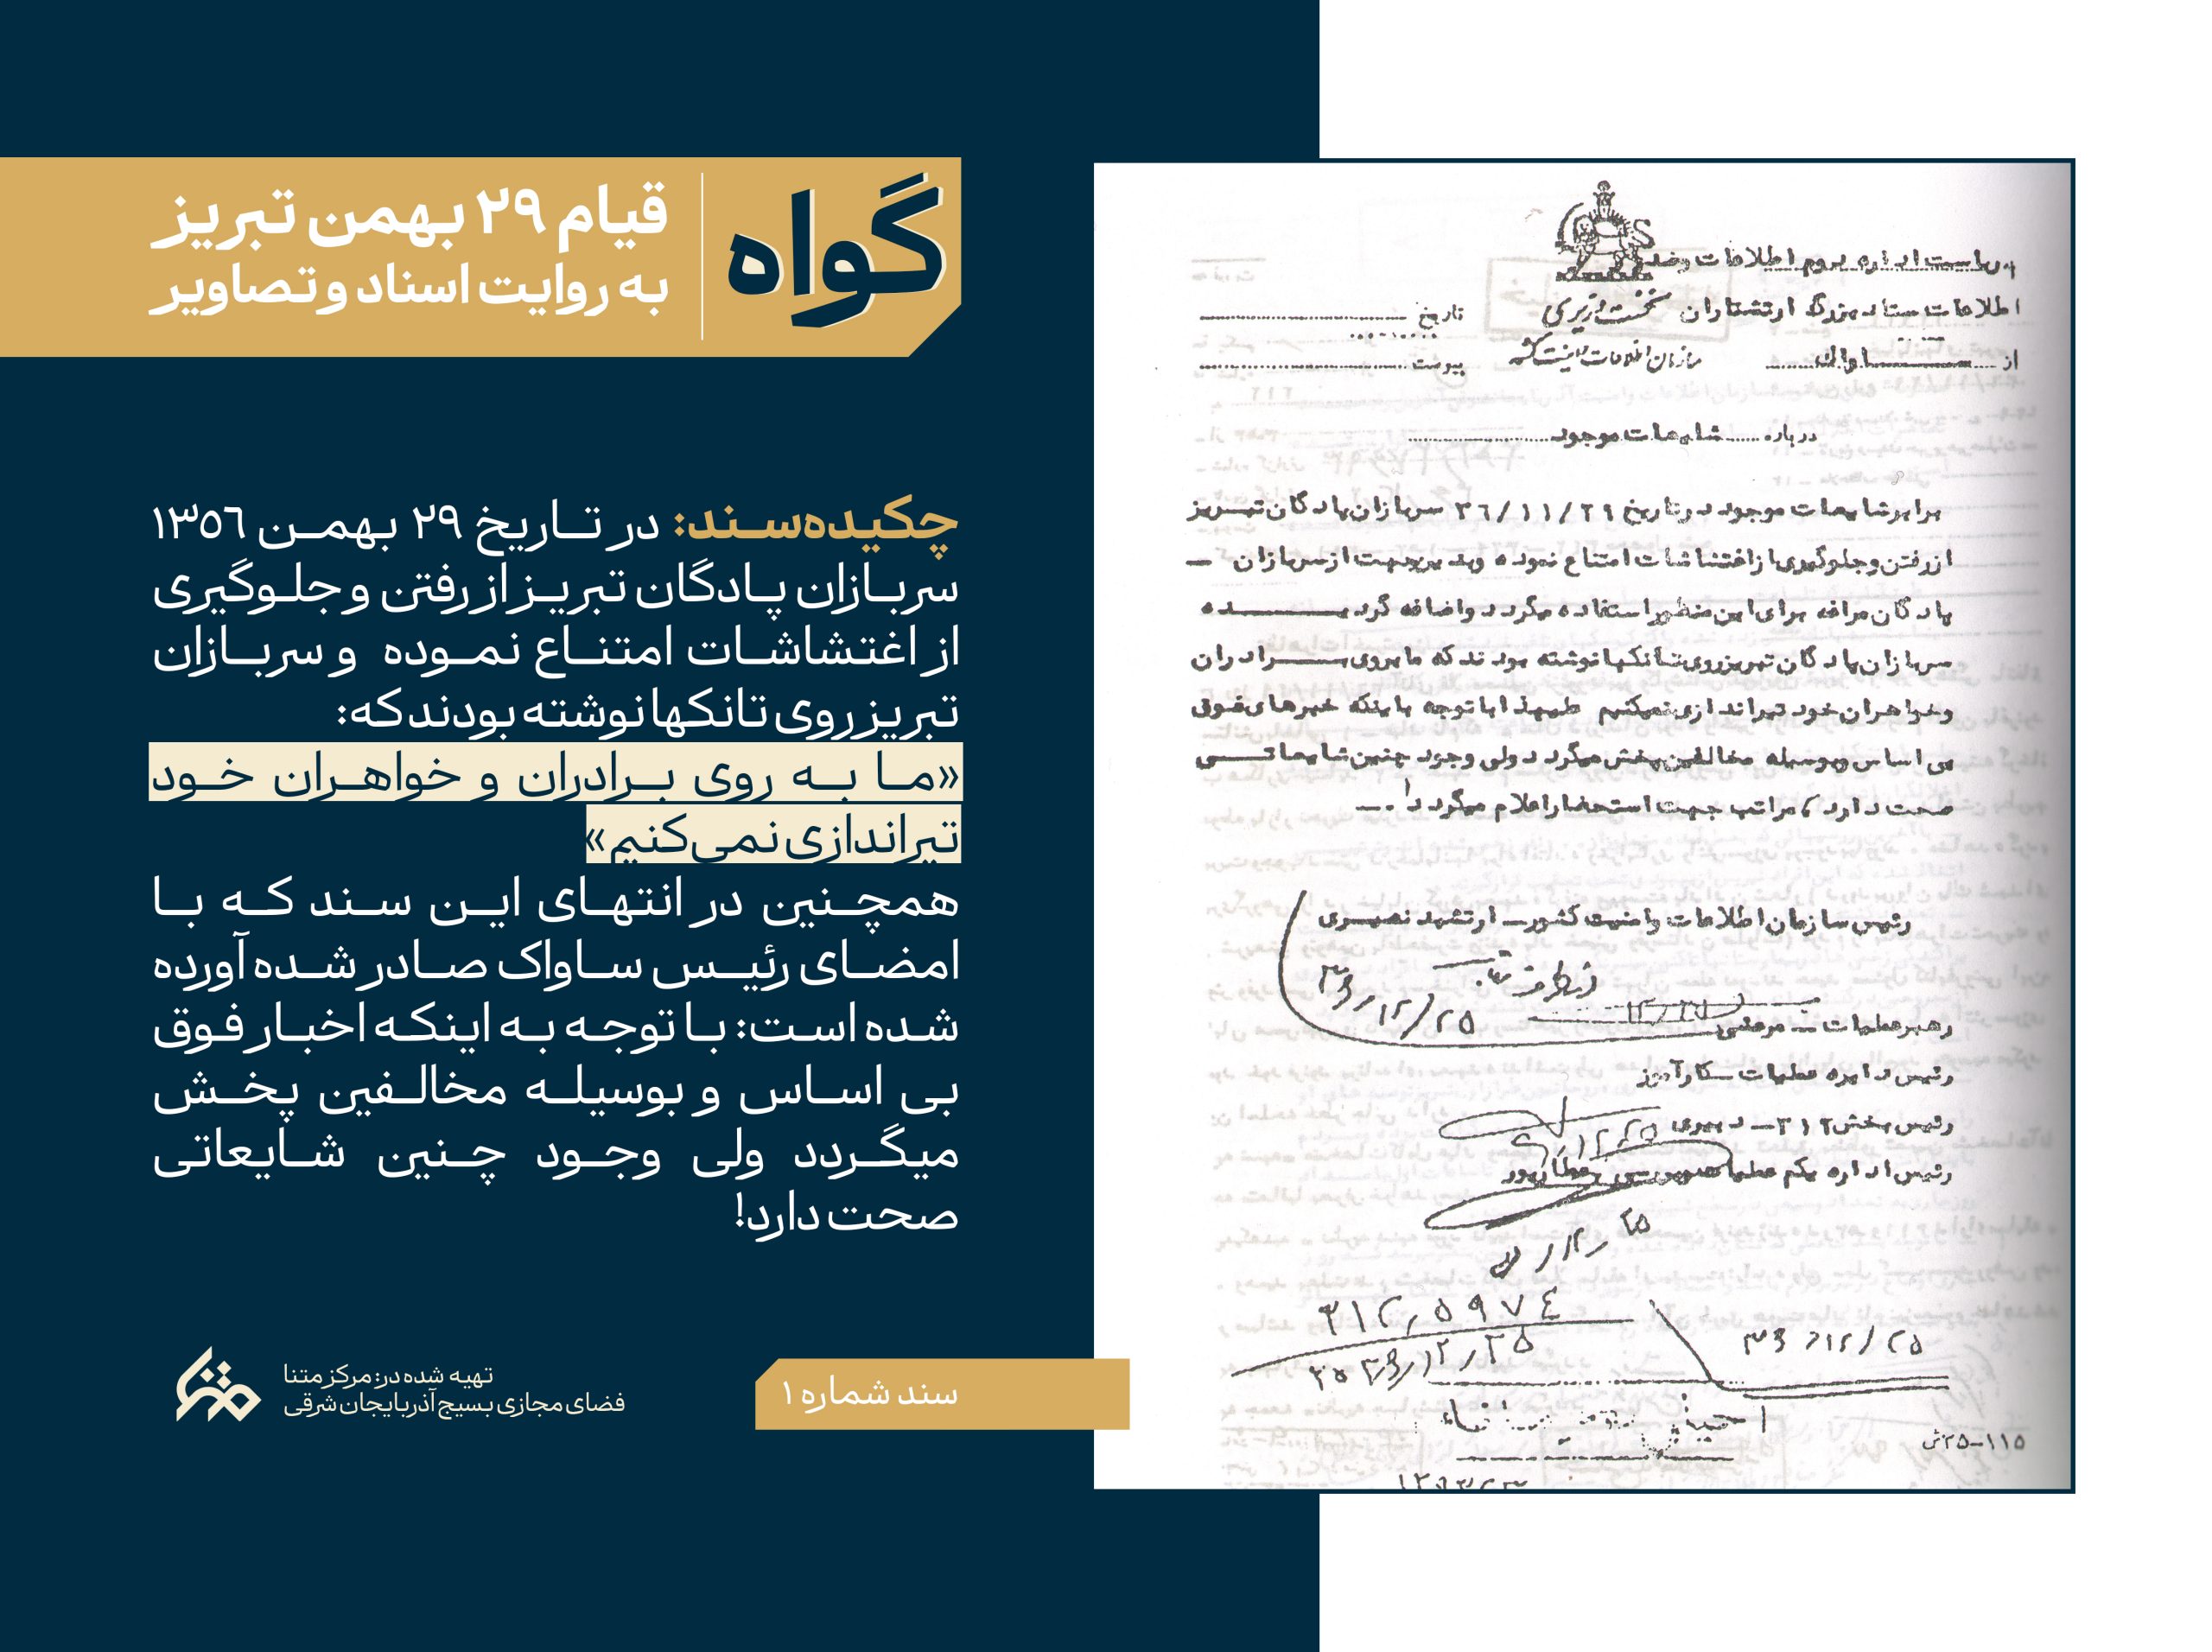 گواه
قیام ۲۹ بهمن تبریز
به روایت اسناد و تصاویر
چکیده‌سند: در تاریخ ۲۹ بهمن ۱۳۵٦
سربازان پادگان تبریز از رفتن و جلوگیری
از اغتشاشات امتناع نموده و سربازان
تبریز روی تانکها نوشته بودند که:
«ما به روی برادران و خواهران خود
تیراندازی نمی‌کنیم»
همچنین در انتهای این سند که با
امضای رئیس ساواک صادر شده آورده
شده است: با توجه به اینکه اخبار فوق
بی اساس و بوسیله مخالفین پخش
میگردد ولی وجود چنین شایعاتی
صحت دارد!
سند شماره ۱
تهیه شده در: مرکز متنا
فضای مجازی بسیج آذربایجان شرقی
متنا
ریاست اداره دوم اطلاعات وضد
اطلاعات ستاد بزرگ ارتشتاران
نخست وزیری
سازمان اطلاعات و امنیت کشور
تاریخ
از ساواک
پیوست
درباره شایعات موجود
برابر شایعات موجود در تاریخ ۳٦/۱۱/۲۹ سربازان پادگان تبریز
از رفتن و جلوگیری از اغتشاشات امتناع نموده و بدین جهت از سربازان ـ
پادگان مراغه برای این منظور استفاده میگردد و اضافه گردیده
سربازان پادگان تبریز روی تانکها نوشته بودند که ما بروی برادران
و خواهران خود تیراندازی نمیکنیم علیهذا با توجه باینکه خبرهای فوق
بی اساس و بوسیله مخالفین پخش میگردد ولی وجود چنین شایعاتی
صحت دارد، مراتب جهت استحضار اعلام میگردد.
رئیس سازمان اطلاعات و امنیت کشور ـ ارتشبد نصیری
از طرف
۳۶/۱۲/۲۵
رهبر عملیات ـ مرعشی
رئیس دایره عملیات ـ کارآموز
رئیس بخش ۳۱۲ ـ دبیری
رئیس اداره یکم عملیات و بررسی ـ عطارپور
۳۱۲/۵۹۷٤
۲۵۳۶/۱۲/۲۵
۳۶/۱۲/۲۵
۱۱۵-۲۵ش